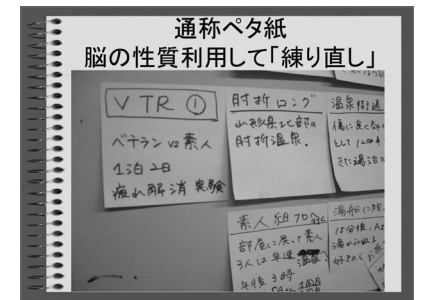 通称ペタ紙
脳の性質利用して「練り直し」
VTR ①
ベテラン vs 素人
1泊2日
疲れ解消 実験
肘折ロング
山形県北部の
肘折温泉.
温泉街通
傷に良く
として 1200年
さた湯治
素人組70分
部屋に戻って素人
3人は早速
午後3時
湯船に
15分後、
湯から
好きの